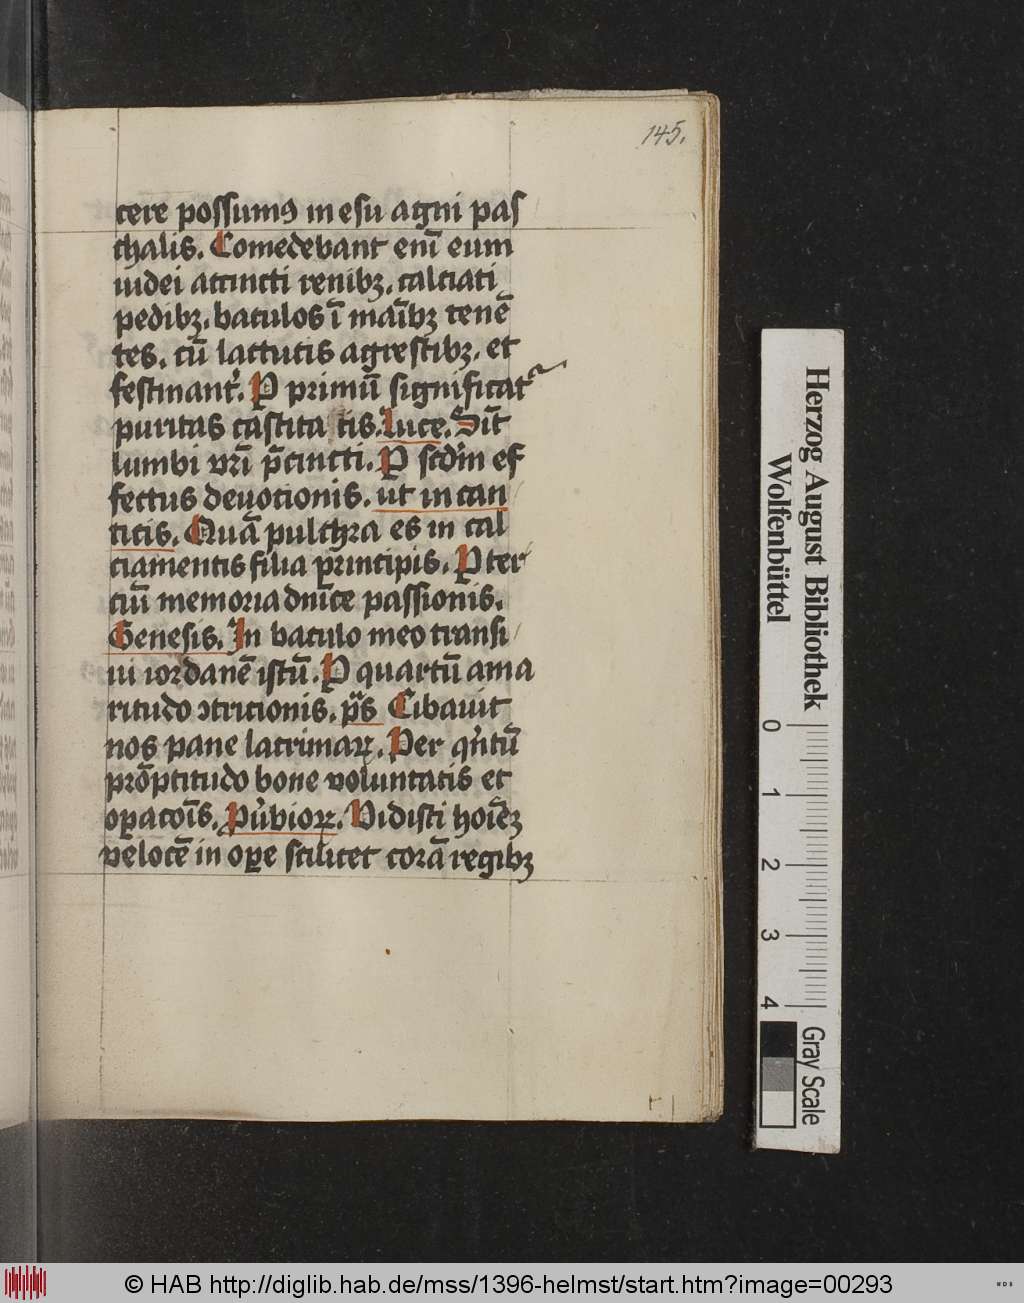 145.
cere possumꝰ in esu agni pas
chalis. Comedebant enī eum
iudei accincti renibꝫ. calciati
pedibꝫ. baculos ī maībꝫ tenē
tes. cū lactucis agrestibꝫ. et
festinant̉. P primū significat᷑
puritas castita tis. Luce. Sīt
lumbi vr̄i p̄cincti. P scd̄m ef
fectus deuotionis. ut in can
ticis. Quā pulchra es in cal
ciamentis filia principis. P ter
ciū memoria dn̄ice passionis.
Genesis. In baculo meo transi
ui iordanē istū. P quartū ama
ritudo ↄtricionis. p̄s Cibauit
nos pane lacrimaꝝ. Per qͥntū
prōptitudo bone voluntatis et
oꝑacōis. Pͧbioꝝ. Vidisti hoīeꝫ
velocē in oꝑe scilicet corā regibꝫ
Herzog August Bibliothek
Wolfenbüttel
0 1 2 3 4
Gray Scale
© HAB http://diglib.hab.de/mss/1396-helmst/start.htm?image=00293
WDB